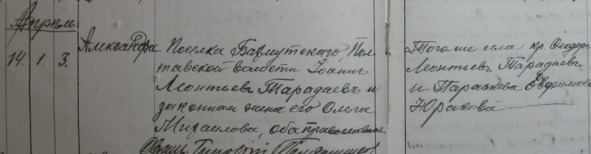 Апрѣль.
14. 1. 3.
Александра.
Поселка Бахмутского, Пол-
тавской волости Іоаннъ
Леонтьевъ Тарадаевъ и
законная жена его Ольга
Михаилова, оба православные
Тогоже села кр. Ѳеодоръ
Леонтьевъ Тарадаевъ
и Параскева Евфимова
Юракова